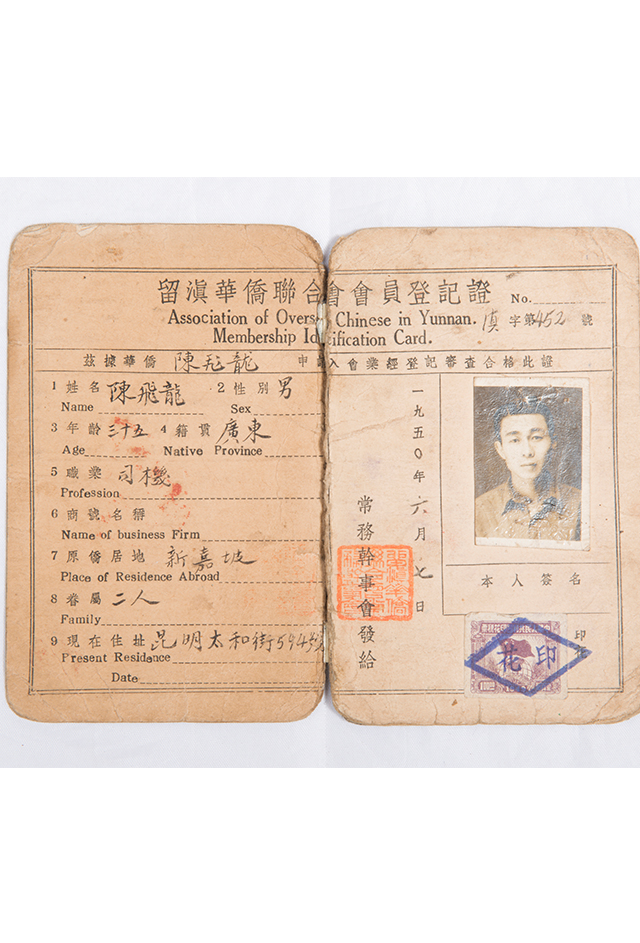 留滇華僑聯合會會員登記證
No.
Association of Overseas Chinese in Yunnan.
滇字第452號
Membership Identification Card.
茲據華僑 陳飛龍 申請入會業經登記審查合格此證
1 姓名 陳飛龍 2 性別 男
Name Sex
3 年齡 三十五 4 籍貫 廣東
Age Native Province
5 職業 司機
Profession
6 商號名稱
Name of business Firm
7 原僑居地 新嘉坡
Place of Residence Abroad
8 眷屬 二人
Family
9 現在住址 昆明太和街594號
Present Residence
Date
一九五〇年六月七日
常務幹事會發給
本人簽名
印花
印花